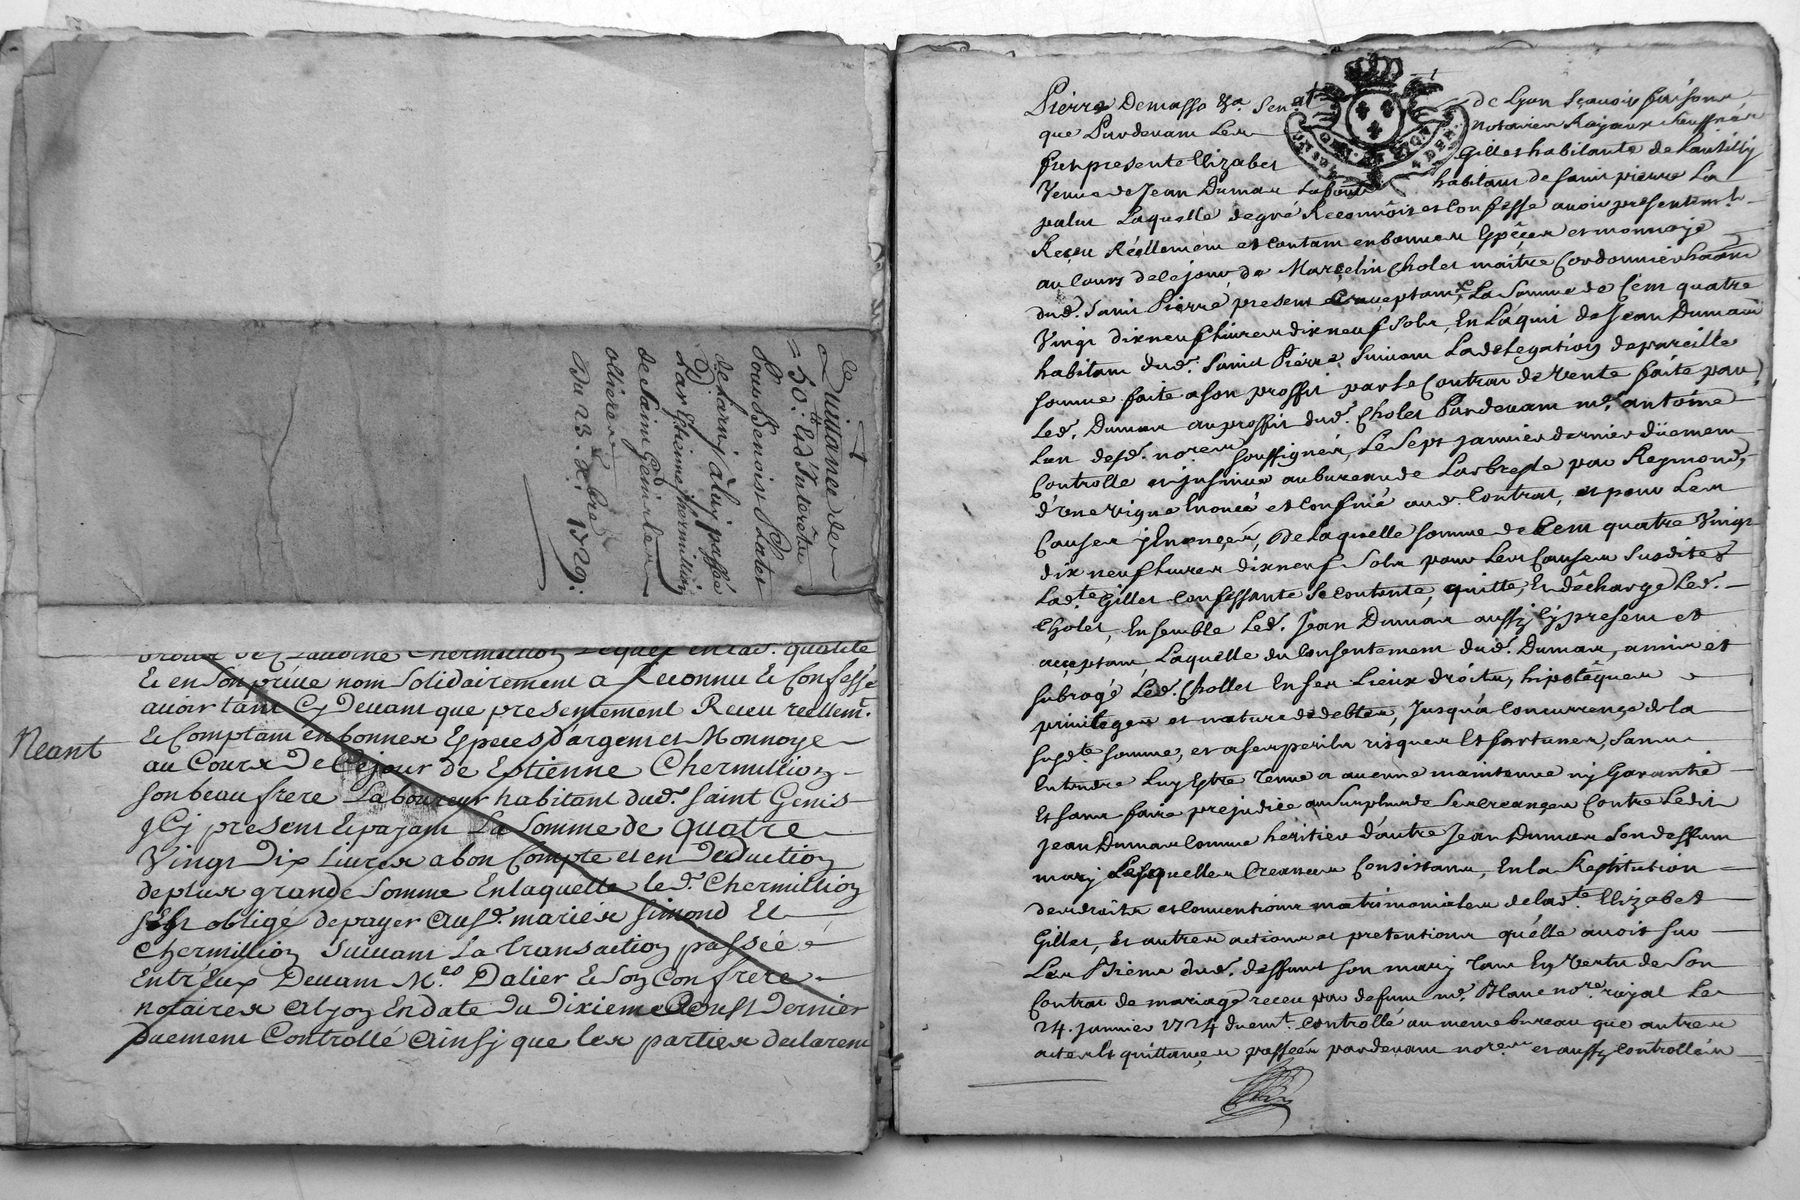 Quittance de
50.ᵗᵗ Et d'Interêts
Pour Benoist
de Larnj à luy passée
Par Estienne Chermillion
de Saint Genis les
ollieres
Du 23.ᵉ xbre 1729.
Neant
de Claudine Chermillion Lequel en lad. qualité
& en Son privé nom Solidairement a Reconnu & Confessé
avoir tant Cy Devant que presentement Receu reellem.ᵗ
& Comptant en bonnes Especes d'argent et Monnoye
au Cours De Cejour de Estienne Chermillion
son beau frere Laboureur habitant dud. saint Genis
jCj present & payant La Somme de quatre
Vingt Dix Livres a bon Compte et en Deduction
de plus grande Somme Enlaquelle led. Chermillion
s'est obligé de payer Ausd. mariés Simond &
Chermillion Suivant La Transaction passée
Entr'Eux Devant M.es Dalier & Son Confrere
notaires ALyon En date du Dixieme Aoust Dernier
Duement Controllé Ainsj que les parties declarent
Pierre Demasso &a. Sen.at de Lyon sçavoir faisons
que Pardevant Les notaires Royaux Soussignés
fut presente Elizabet Gillet habitante de Lantilly
Veuve de Jean Dumas habitant de saint pierre La
palus Laquelle de gré Reconnoist et Confesse avoir presentem.t
Receu Réellement et Contant en bonnes Espèces et monnoye
au Cours de ce jour, de Marcelin Cholet maître Cordonnier habitant
dud. Saint Pierre, present et acceptant, La Somme de Cent quatre
Vingt dix neuf Livres dix neuf Sols, En L'aquit de Jean Dumas
habitant dud. Saint Pierre, Suivant La delegation de pareille
somme faite a son proffit par Le Contrat de Vente faite par
Led. Dumas au proffit dud. Cholet Pardevant m.e antoine
L'un desd. no.res soussignés, Le Sept janvier dernier düement
Controllé et insinué au bureau de Larbresle par Reymond,
d'Une vigne Enoncé et Confiné aud. Contrat, et pour Les
Causes y Enoncées, De Laquelle somme de Cent quatre Vingt
dix neuf Livres dix neuf Sols pour Les Causes Susdites
Lad.te Gillet Confessante Se contente, quitte, En décharge Led.
Cholet, Ensemble Led. Jean Dumas aussy Cy present et
acceptant, Laquelle du Consentement dud. Dumas, a mis et
subrogé Led. Chollet En ses Lieux droits, hipotêques
privileges et nature de debtes, Jusqu'a Concurrence de la
susd.te somme, et a ses perils risques Et fortunes, sans
Entendre Luy Estre Tenue a aucune maintenue ny Garantie
Et sans faire prejudice au Surplus de Ses creances Contre Ledit
Jean Dumas Comme heritier d'autre Jean Dumas Son deffunt
mary Lesquelles Creances Consistans, En La Restitution
des droits et Conventions matrimoniales de lad.te Elizabet
Gillet, Et autres actions et pretentions qu'elle avoit sur
Les Biens dud. deffunt son mary Tant En Vertu de Son
Contrat de mariage receu par defunt m.e Blanc no.re royal Le
24. janvier 1724 duem.t Controllé au meme bureau que autres
actes Et quittances passées pardevant no.res et aussy Controllés